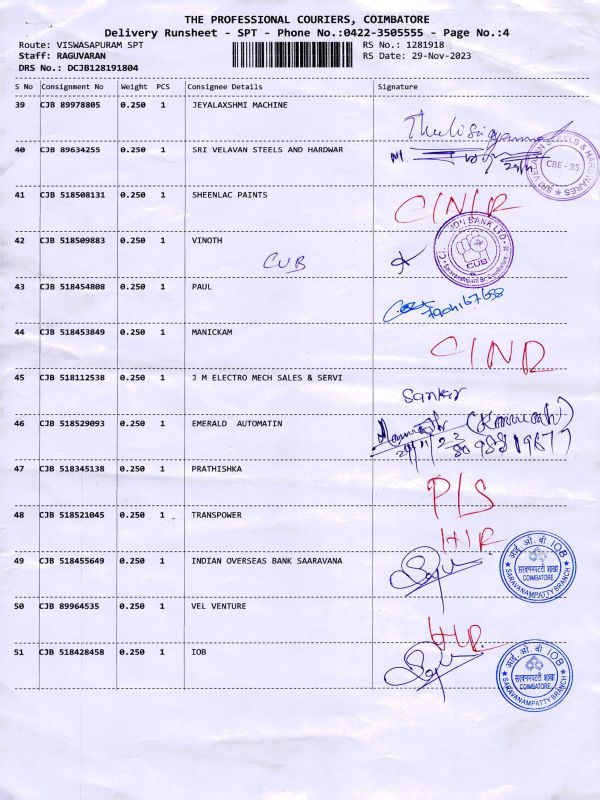 THE PROFESSIONAL COURIERS, COIMBATORE
Delivery Runsheet - SPT - Phone No.:0422-3505555 - Page No.:4
Route: VISWASAPURAM SPT
RS No.: 1281918
Staff: RAGUVARAN
RS Date: 29-Nov-2023
DRS No.: DCJB128191804
S No Consignment No Weight PCS Consignee Details Signature
39 CJB 89978805 0.250 1 JEYALAXSHMI MACHINE
40 CJB 89634255 0.250 1 SRI VELAVAN STEELS AND HARDWAR
SRI VELAVAN STEELS & HARDWARES
CBE - 35
41 CJB 518508131 0.250 1 SHEENLAC PAINTS
42 CJB 518509883 0.250 1 VINOTH
CUB
CUB
43 CJB 518454808 0.250 1 PAUL
44 CJB 518453849 0.250 1 MANICKAM
45 CJB 518112538 0.250 1 J M ELECTRO MECH SALES & SERVI
Sankar
46 CJB 518529093 0.250 1 EMERALD AUTOMATIN
47 CJB 518345138 0.250 1 PRATHISHKA
PLS
48 CJB 518521045 0.250 1 TRANSPOWER
49 CJB 518455649 0.250 1 INDIAN OVERSEAS BANK SAARAVANA
आई. ओ. बी IOB
सरवनमपट्टी शाखा
COIMBATORE
SARAVANAMPATTY BRANCH
50 CJB 89964535 0.250 1 VEL VENTURE
51 CJB 518428458 0.250 1 IOB
आई. ओ. बी IOB
सरवनमपट्टी शाखा
COIMBATORE
SARAVANAMPATTY BRANCH